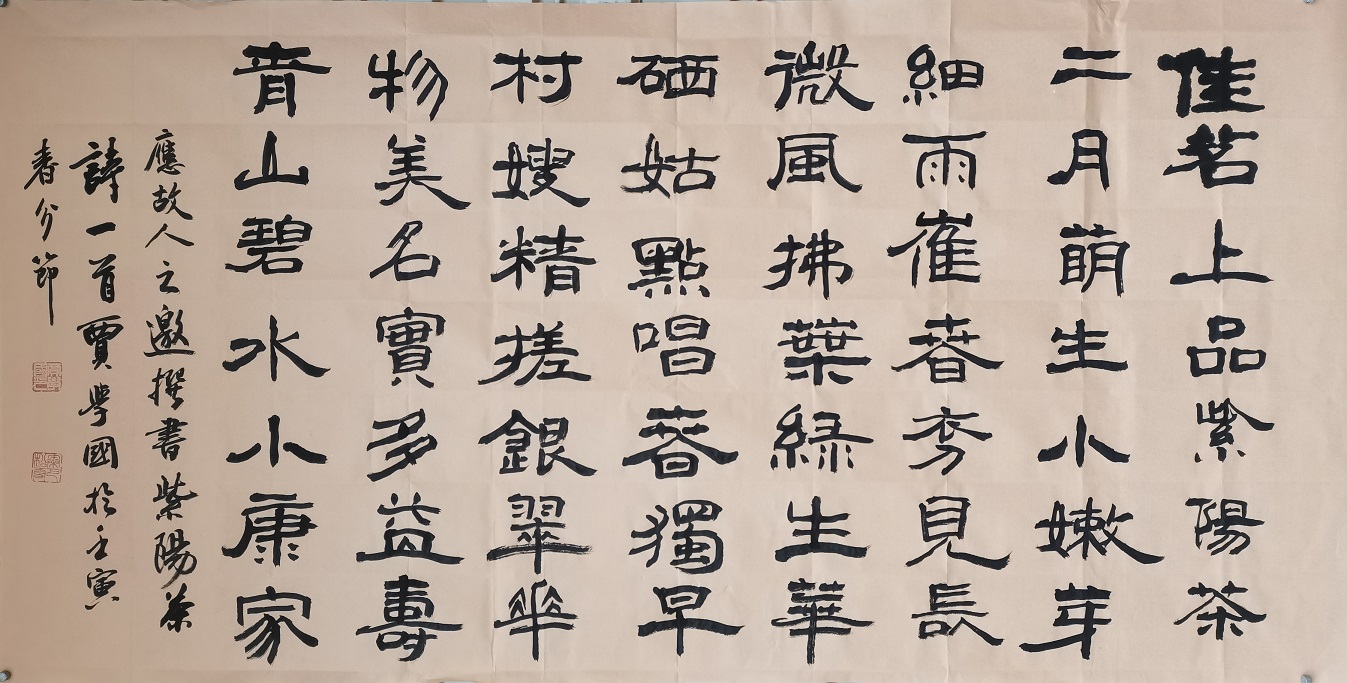 佳茗上品紫陽茶
二月萌生小嫩芽
細雨崔春秀見長
微風拂葉綠生華
硒姑點唱春獨早
村嫂精搓銀翠華
物美名實多益壽
青山碧水小康家
應故人之邀撰書紫陽茶
詩一首賈學國於壬寅
春分節